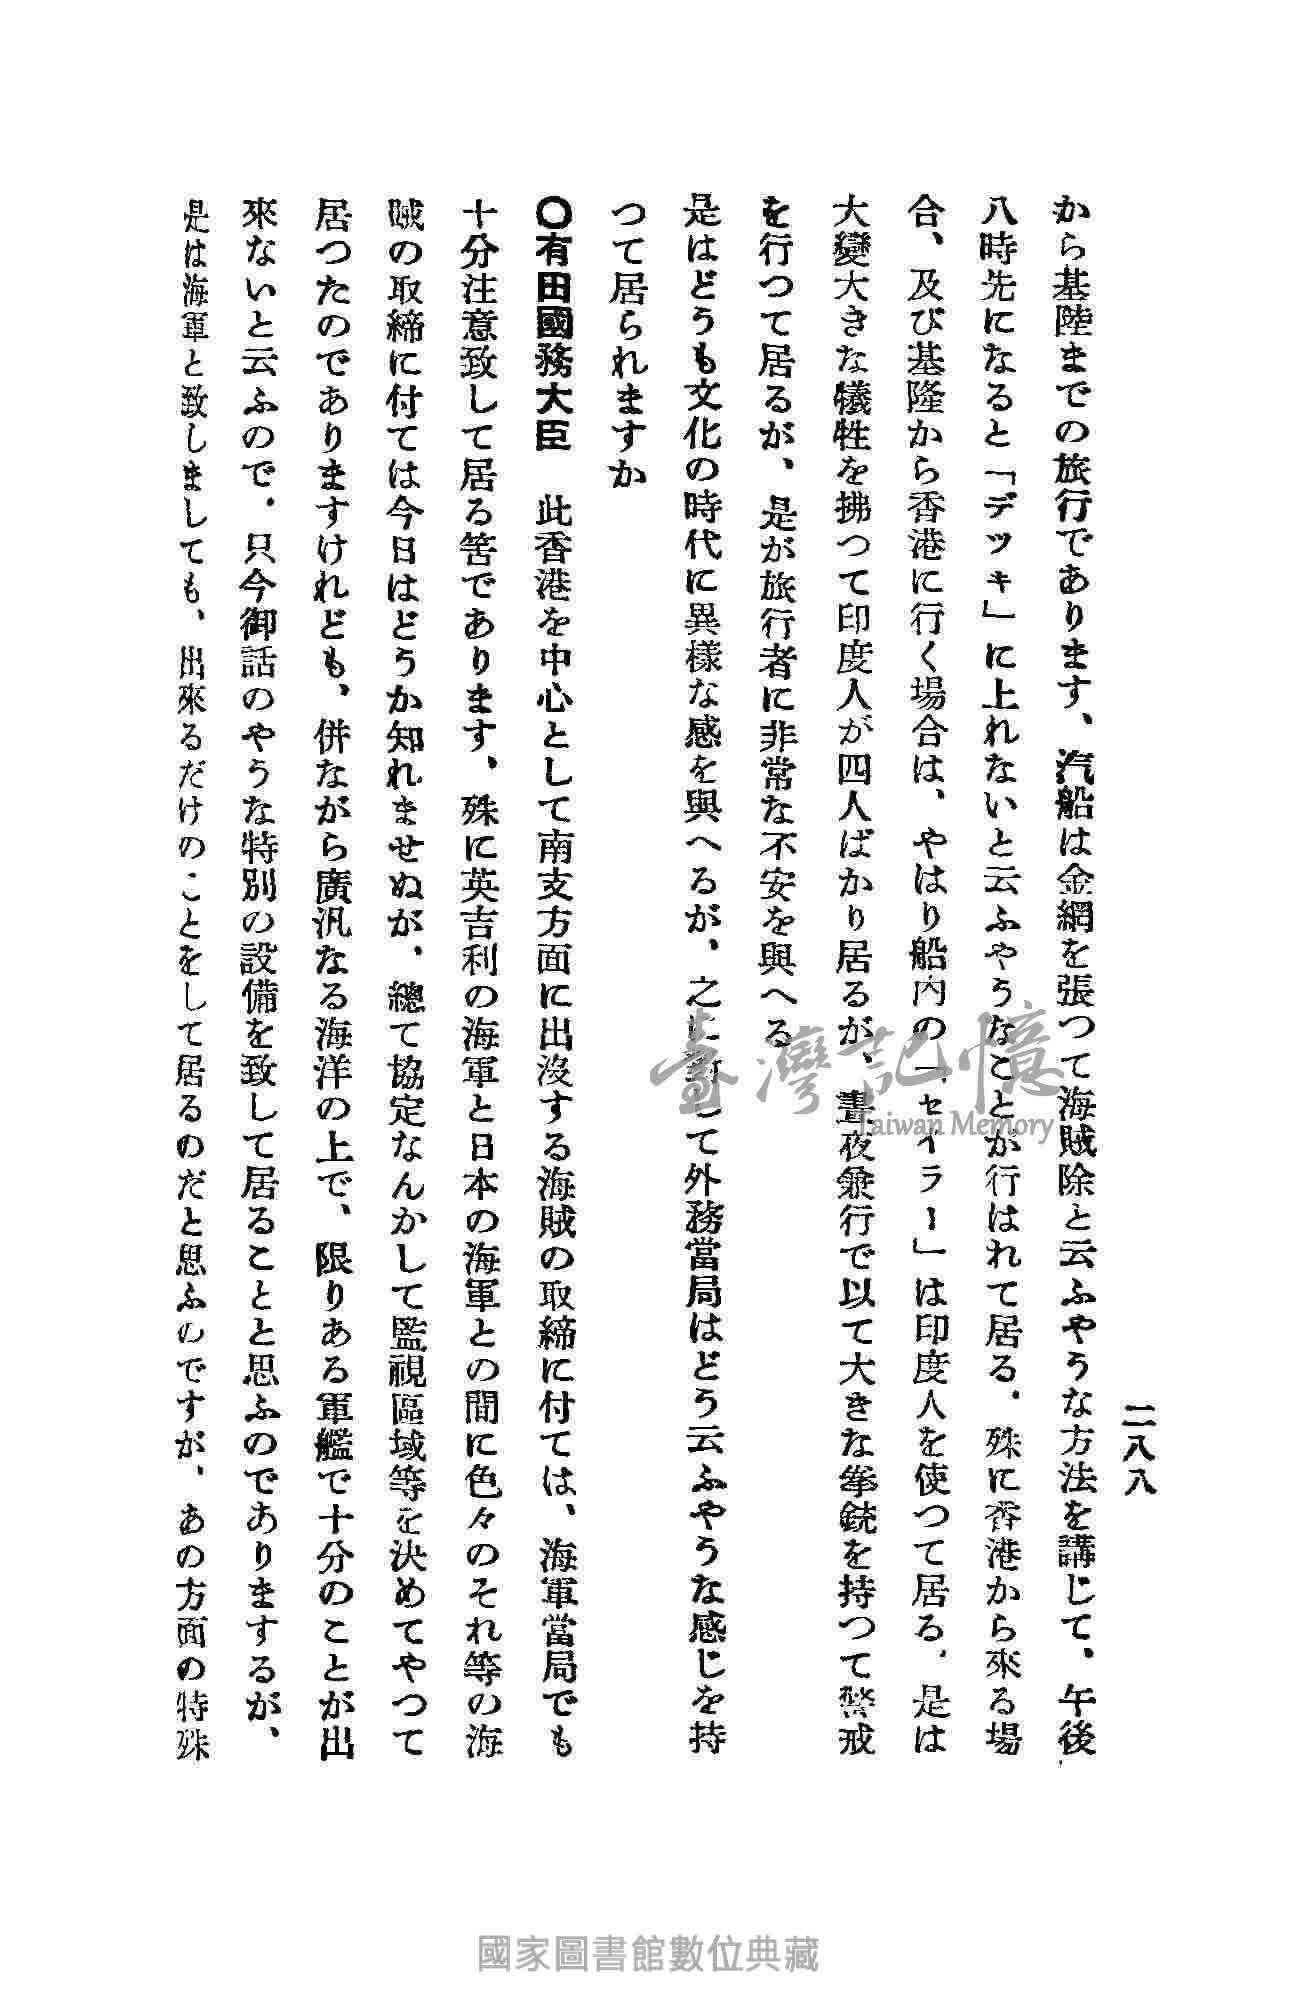 二八八
から基陸までの旅行であります、汽船は金網を張つて海賊除と云ふやうな方法を講じて、午後
八時先になると「デッキ」に上れないと云ふやうなことが行はれて居る、殊に香港から來る場
合、及び基隆から香港に行く場合は、やはり船内の「セイラー」は印度人を使つて居る、是は
大變大きな犠牲を拂つて印度人が四人ばかり居るが、晝夜兼行で以て大きな拳銃を持つて警戒
を行つて居るが、是が旅行者に非常な不安を與へる
是はどうも文化の時代に異樣な感を與へるが、之に對して外務當局はどう云ふやうな感じを持
つて居られますか
〇有田國務大臣　此香港を中心として南支方面に出沒する海賊の取締に付ては、海軍當局でも
十分注意致して居る筈であります、殊に英吉利の海軍と日本の海軍との間に色々のそれ等の海
賊の取締に付ては今日はどうか知れませぬが、總て協定なんかして監視區域等を決めてやつて
居つたのでありますけれども、併ながら廣汎なる海洋の上で、限りある軍艦で十分のことが出
來ないと云ふので、只今御話のやうな特別の設備を致して居ることと思ふのでありまするが、
是は海軍と致しましても、出來るだけのことをして居るのだと思ふのですが、あの方面の特殊
臺灣記憶
Taiwan Memory
國家圖書館數位典藏